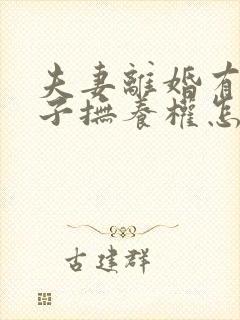 夫妻離婚有
子撫養權怎
古建群